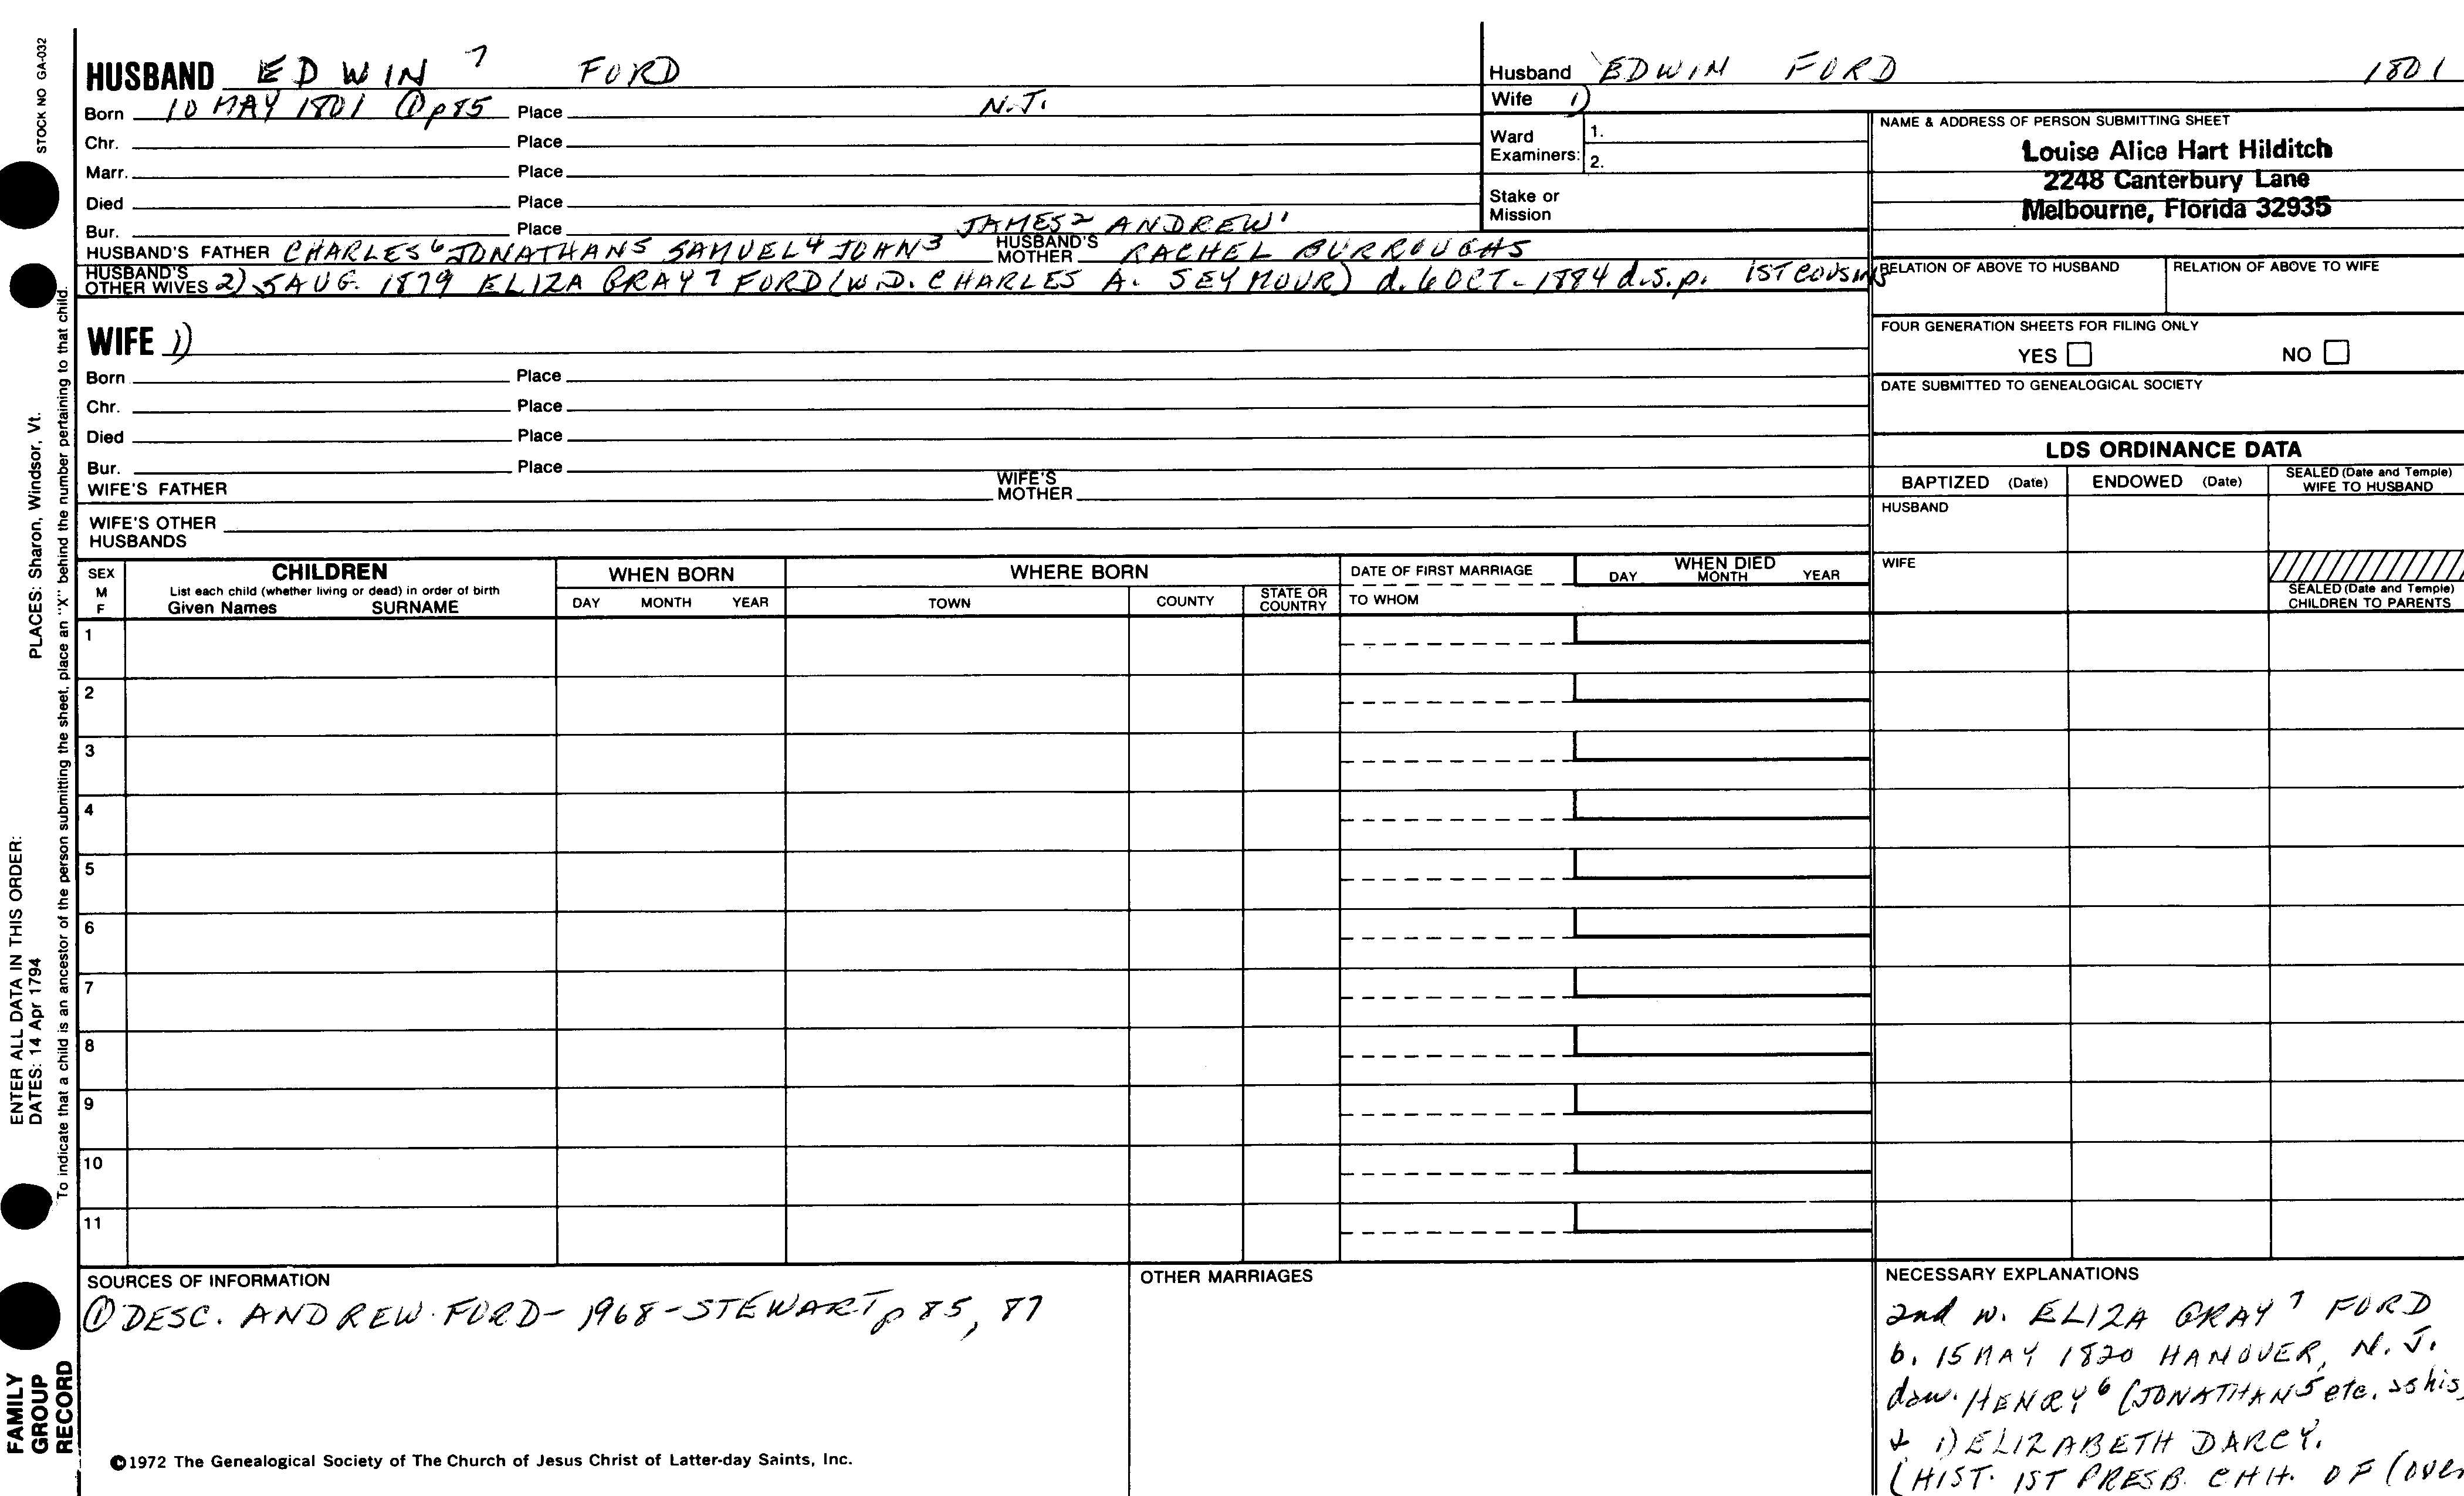 STOCK NO GA-032
HUSBAND EDWIN 7 FORD
Born 10 MAY 1801 ① p85 Place N.J.
Chr. Place
Marr. Place
Died Place
Bur. Place JAMES2 ANDREW1
HUSBAND'S FATHER CHARLES6 JONATHAN5 SAMUEL4 JOHN3 HUSBAND'S MOTHER RACHEL BURROUGHS
HUSBAND'S OTHER WIVES 2) 5 AUG. 1879 ELIZA GRAY7 FORD (WD. CHARLES A. SEYMOUR) d. 6 OCT. 1884 d.s.p. 1ST COUSINS
WIFE 1)
Born Place
Chr. Place
Died Place
Bur. Place
WIFE'S FATHER WIFE'S MOTHER
WIFE'S OTHER HUSBANDS
Husband EDWIN FORD 1801
Wife 1)
Ward Examiners: 1.
2.
Stake or Mission
NAME & ADDRESS OF PERSON SUBMITTING SHEET
Louise Alice Hart Hilditch
2248 Canterbury Lane
Melbourne, Florida 32935
RELATION OF ABOVE TO HUSBAND RELATION OF ABOVE TO WIFE
FOUR GENERATION SHEETS FOR FILING ONLY
YES NO
DATE SUBMITTED TO GENEALOGICAL SOCIETY
LDS ORDINANCE DATA
BAPTIZED (Date) ENDOWED (Date) SEALED (Date and Temple) WIFE TO HUSBAND
HUSBAND
WIFE
SEALED (Date and Temple) CHILDREN TO PARENTS
SEX M F
CHILDREN
List each child (whether living or dead) in order of birth
Given Names SURNAME
WHEN BORN
DAY MONTH YEAR
WHERE BORN
TOWN COUNTY STATE OR COUNTRY
DATE OF FIRST MARRIAGE
TO WHOM
WHEN DIED
DAY MONTH YEAR
1
2
3
4
5
6
7
8
9
10
11
SOURCES OF INFORMATION
① DESC. ANDREW FORD - 1968 - STEWART p 85, 87
OTHER MARRIAGES
NECESSARY EXPLANATIONS
2nd w. ELIZA GRAY7 FORD
b. 15 MAY 1820 HANOVER, N.J.
daw. HENRY6 (JONATHAN5 etc. as his)
+ 1) ELIZABETH DARCY.
(HIST. 1ST PRESB. CHH. OF (over
©1972 The Genealogical Society of The Church of Jesus Christ of Latter-day Saints, Inc.
PLACES: Sharon, Windsor, Vt.
ENTER ALL DATA IN THIS ORDER:
DATES: 14 Apr 1794
To indicate that a child is an ancestor of the person submitting the sheet, place an "X" behind the number pertaining to that child.
FAMILY
GROUP
RECORD